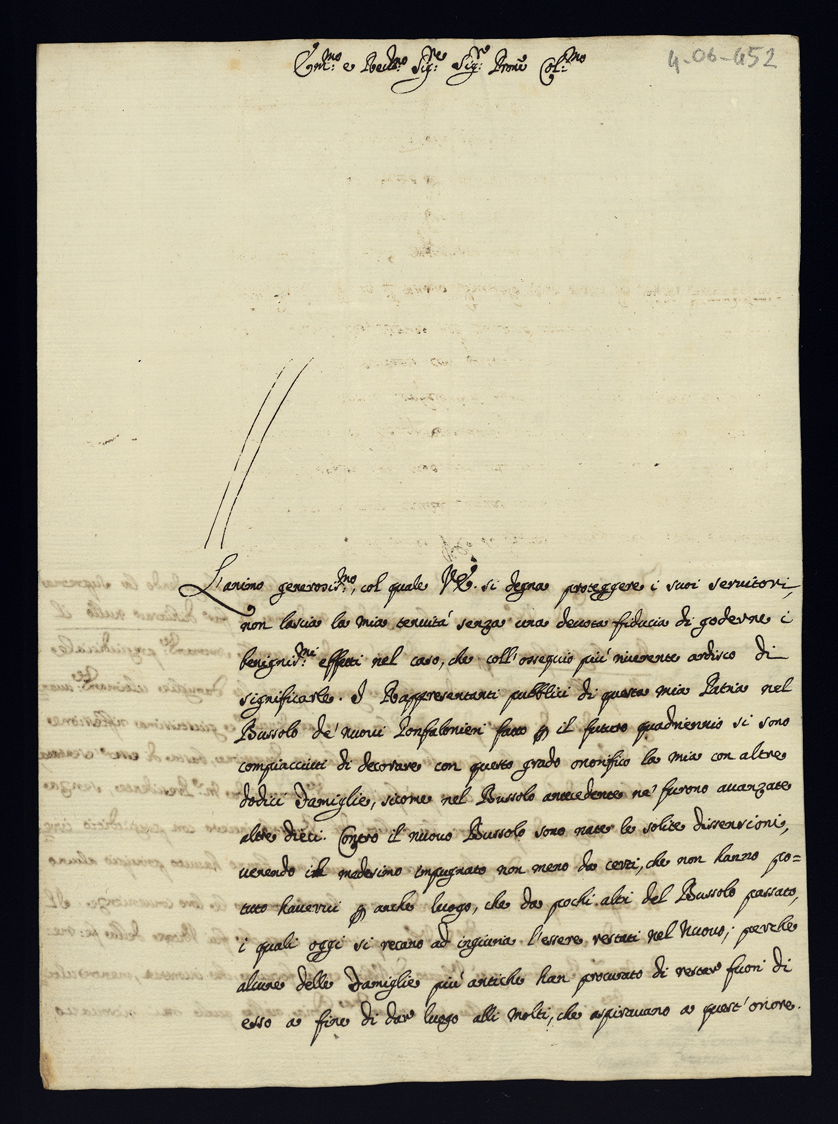 Em:mo e Reu:mo Sig:re Sig:re Prone Col:mo
4-06-452
L'animo generosis:mo, col quale V.E. si degna proteggere i suoi seruitori,
non lascia la mia tenuità senza una deuota fiducia di goderne i
benignis:mi effetti nel caso, che coll'ossequio più riuerente ardisco di
significarle. I Rappresentanti pubblici di questa mia Patria nel
Bussolo de' nuoui Confalonieri fatto p il futuro quadriennio si sono
compiacciuti di decorare con questo grado onorifico la mia con altre
dodici Famiglie, sicome nel Bussolo antecedente ne' furono auanzate
altre dieci. Contro il nuouo Bussolo sono nate le solite dissensioni,
uenendo il medesimo impugnato non meno da certi, che non hanno po=
tuto hauerui p anche luogo, che da pochi altri del Bussolo passato,
i quali oggi si recano ad ingiuria l'essere restati nel Nuouo; perche
alcune delle Famiglie più antiche han procurato di restar fuori di
esso a fine di dar luogo alli molti, che aspirauano a quest'onore.